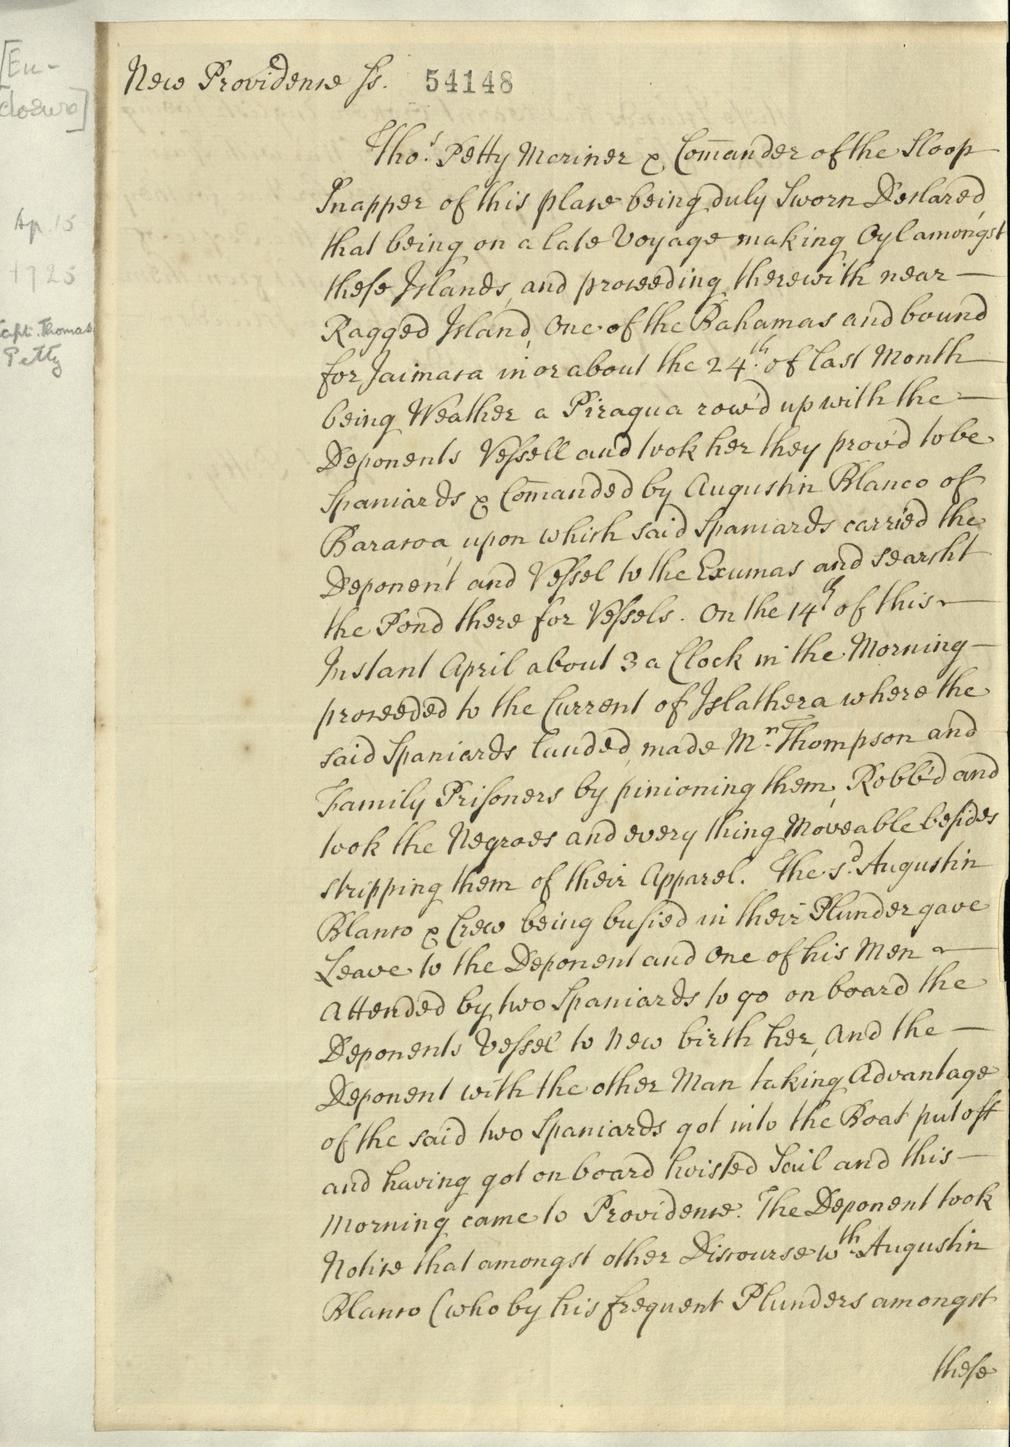 New Providence ss. 54148
[En-
closure]
Ap 15
1725
Capt. Thomas
Petty
Thos. Petty Mariner & Comander of the Sloop
Snapper of this place being duly Sworn Declared
that being on a late Voyage making Oyl amongst
these Islands, and proceeding therewith near
Ragged Island, One of the Bahamas and bound
for Jaimaca in or about the 24th. of last Month
being Weather a Piragua row'd up with the
Deponents Vessell and took her they prov'd to be
Spaniards & Comanded by Augustin Blanco of
Baracoa, upon which said Spaniards carried the
Deponent and Vessel to the Exumas and searcht
the Pond there for Vessels. On the 14th of this
Instant April about 3 a Clock in the Morning
proceeded to the Current of Islathera where the
said Spaniards landed, made Mr. Thompson and
Family Prisoners by pinioning them, Robb'd and
took the Negroes and every thing Moveable besides
stripping them of their Apparel. The sd. Augustin
Blanco & Crew being busied in their Plunder gave
Leave to the Deponent and One of his Men
Attended by two Spaniards to go on board the
Deponents Vessel to New birth her, And the
Deponent with the other Man taking Advantage
of the said two Spaniards got into the Boat put off
and having got on board hoisted Sail and this
Morning came to Providence. The Deponent took
Notice that amongst other Discourse wth. Augustin
Blanco (who by his frequent Plunders amongst
these